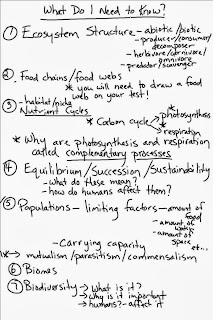 What Do I Need to Know?
① Ecosystem Structure - abiotic/biotic
- producer/consumer/
decomposer
- herbivore/carnivore/
omnivore
- predator/scavenger
② Food chains/food webs
* you will need to draw a food
web on your test!
- habitat/niche
③ Nutrient Cycles
* Carbon cycle * photosynthesis
* respiration
* Why are photosynthesis and respiration
called complementary processes
④ Equilibrium/Succession/Sustainability
- what do these mean?
- how do humans affect them?
⑤ Populations - limiting factors - amount of
food
- amount of
water
- amount of
space
etc...
- Carrying capacity
* mutualism/parasitism/commensalism
⑥ Biomes
⑦ Biodiversity → What is it?
→ Why is it important
→ humans? - affect it